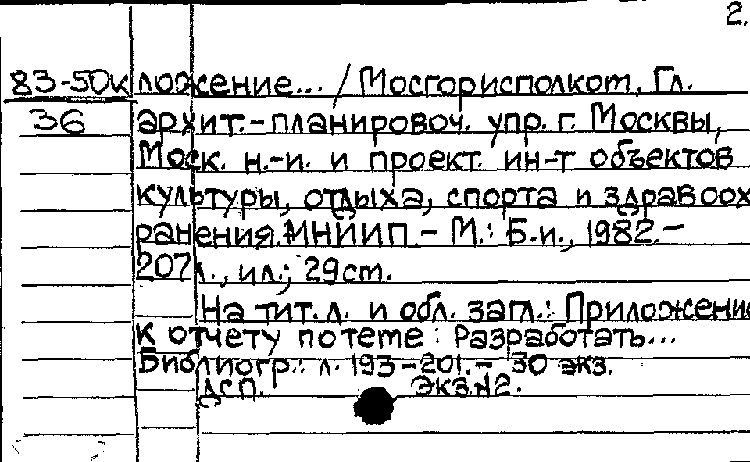 2.
83-50к ложение... / Мосгорисполком, Гл.
36 архит.-планировоч. упр. г. Москвы,
Моск. н.-и. и проект. ин-т объектов
культуры, отдыха, спорта и здравоох
ранения. МНИИП. - М.: Б.и., 1982.-
207л., ил.; 29см.
На тит.л. и обл. загл.: Приложение
к отчету по теме: Разработать...
Библиогр.: л. 193-201.- 30 экз.
ДСП. Экз.N2.